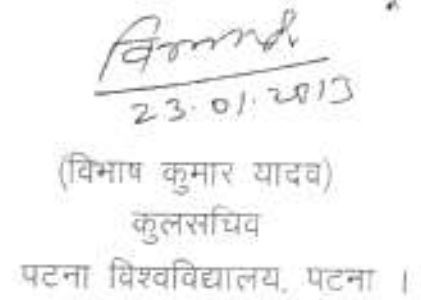 23.01.2013
(विभाष कुमार यादव)
कुलसचिव
पटना विश्वविद्यालय, पटना ।